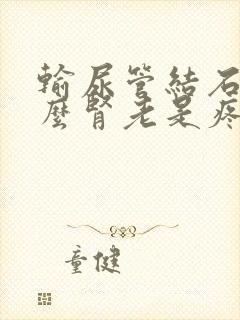 輸尿管結石
麼腎老是疼
童健